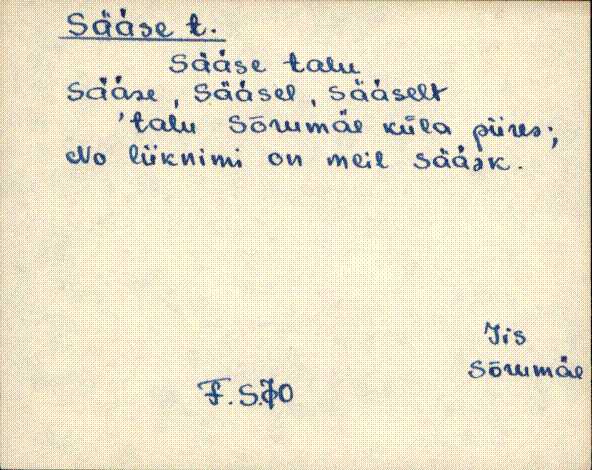 Sääse t.
Sääse talu
Sääse, Sääsel, Sääselt
'talu Sõrumäe küla piires;
No liiknimi on meil sääsk.
Iis
Sõrumäe
F. S.